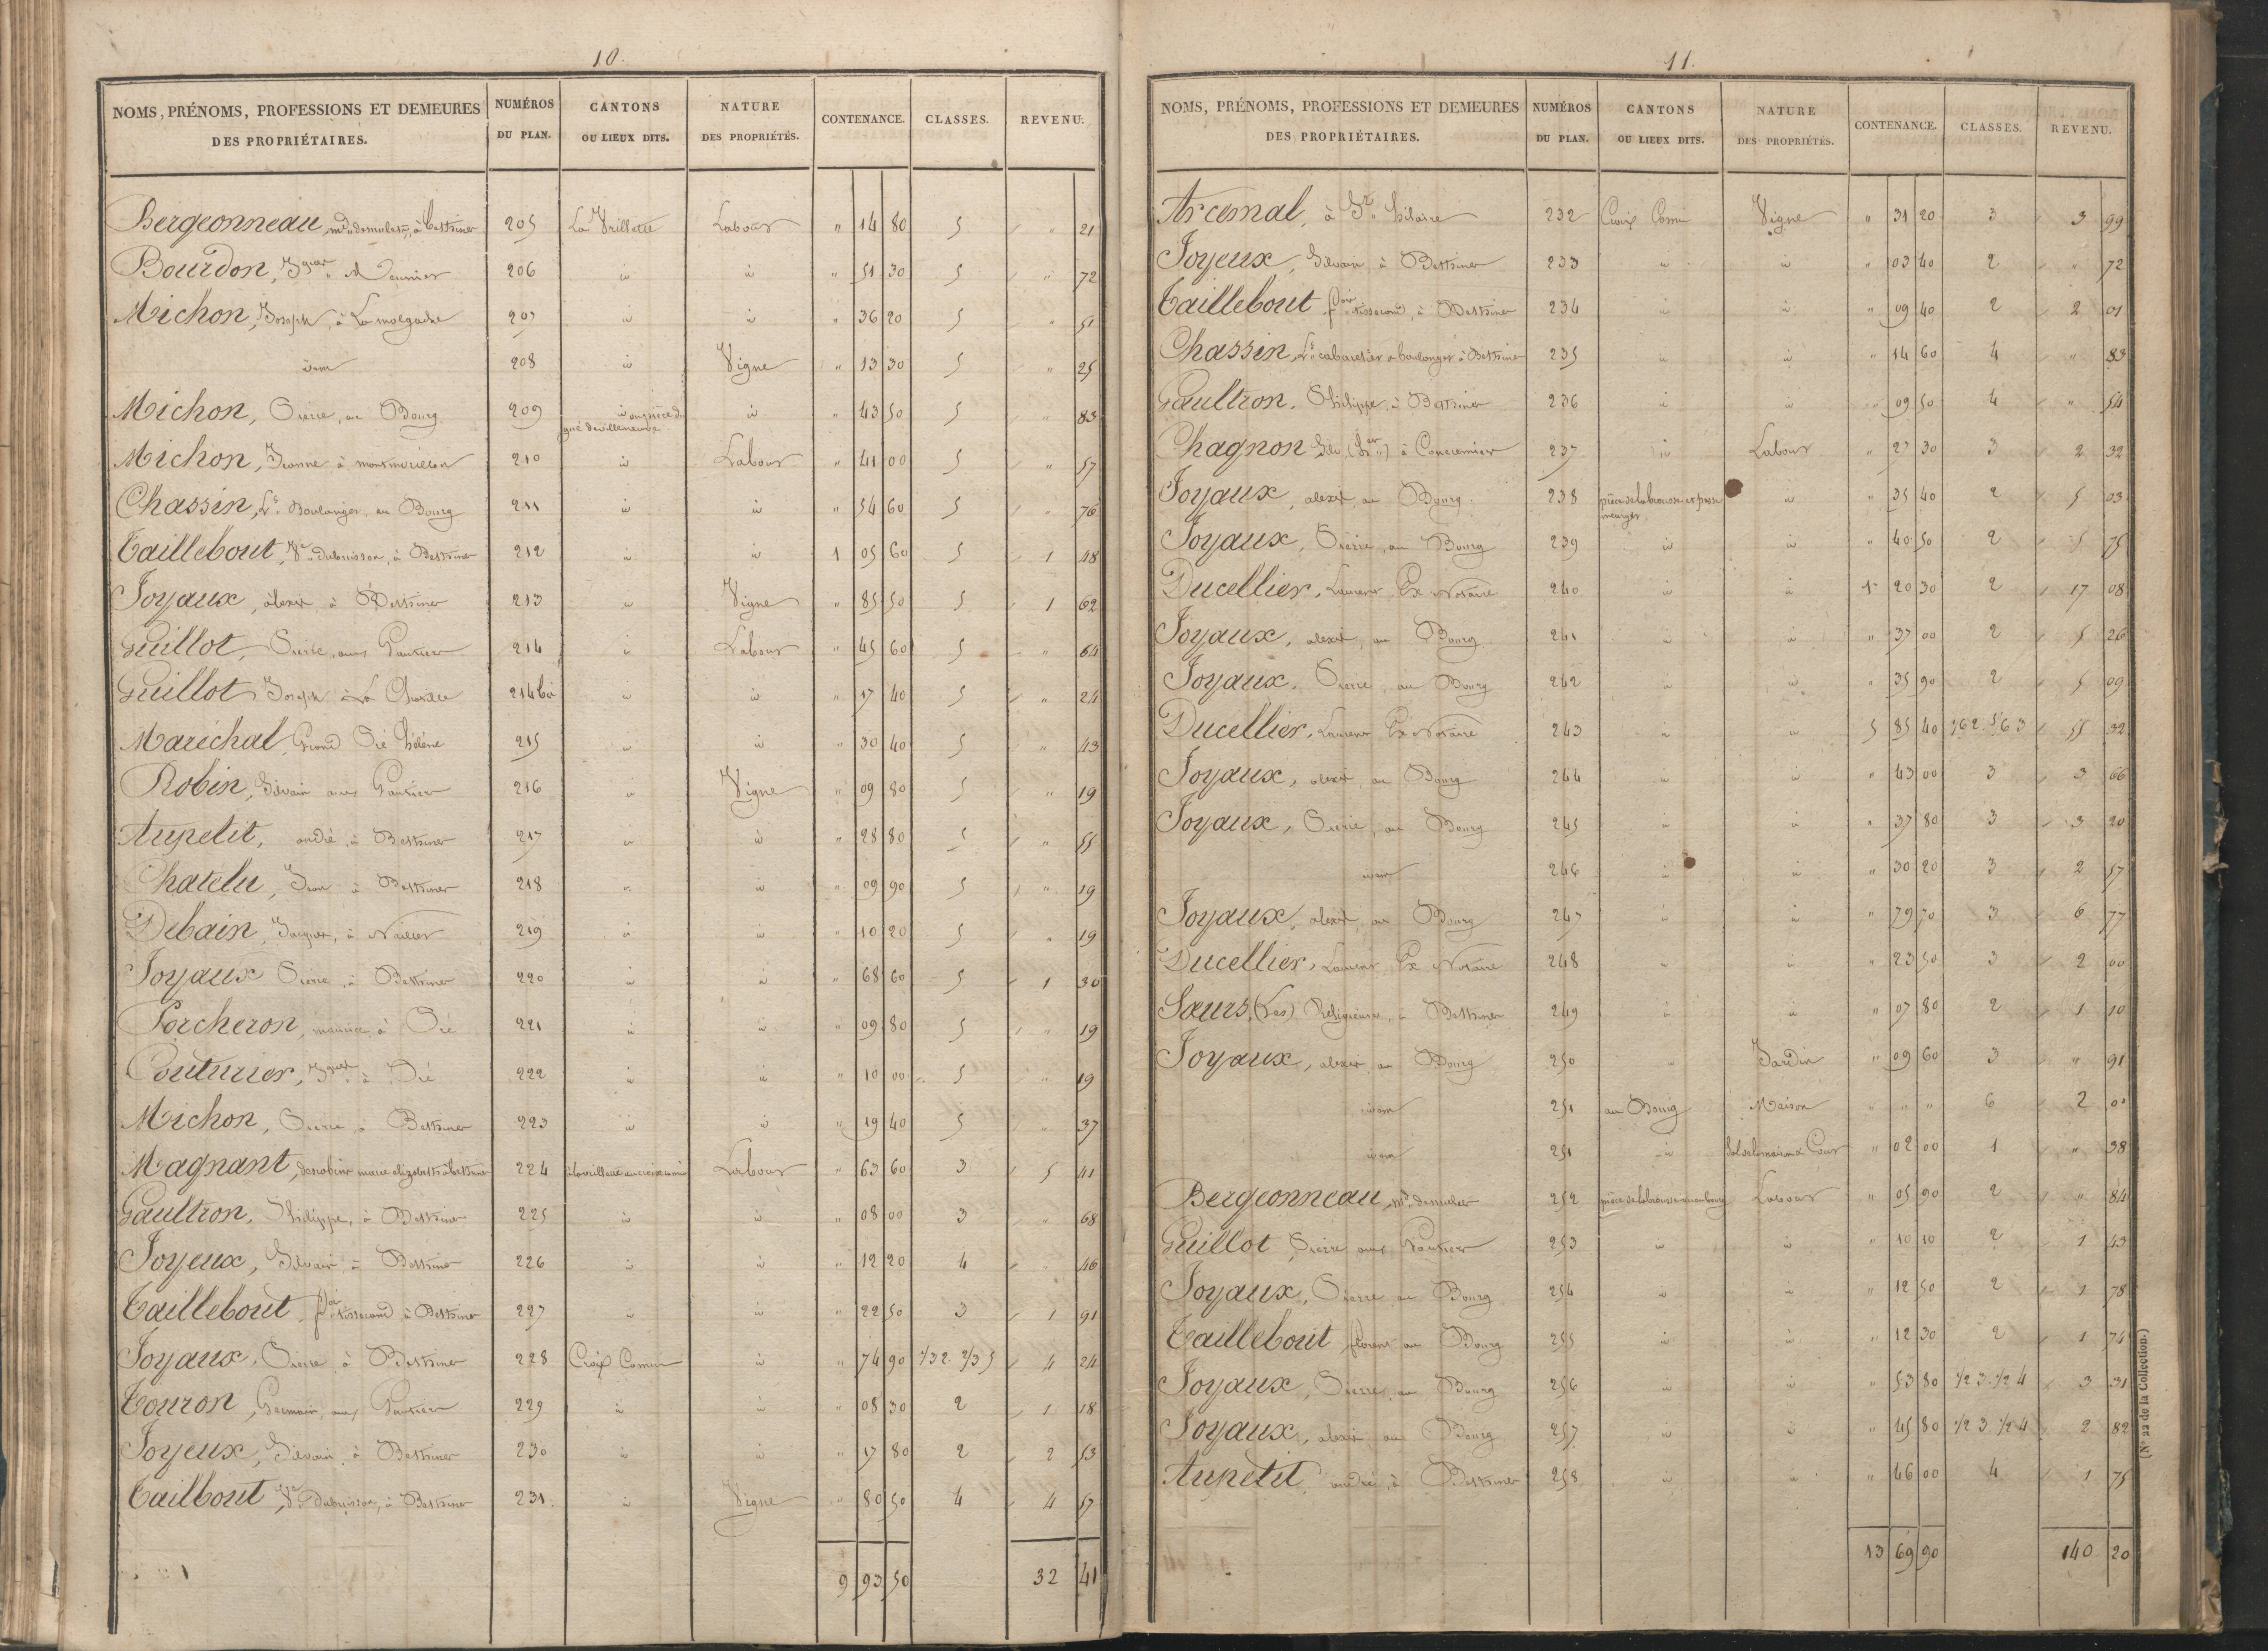 10.
NOMS, PRÉNOMS, PROFESSIONS ET DEMEURES DES PROPRIÉTAIRES. NUMÉROS DU PLAN. CANTONS OU LIEUX DITS. NATURE DES PROPRIÉTÉS. CONTENANCE. CLASSES. REVENU.
Bergeonneau, md de mulets, à Bethines 205 La Vrillette Labour " 14 80 5 " 21
Bourdon, 206 id id " 51 30 5 " 72
Michon, Joseph, à 207 id id " 36 20 5 " 51
idem 208 id Vigne " 13 30 5 " 25
Michon, Pierre, au Bourg 209 id id " 43 50 5 " 83
Michon, Jeanne, à 210 id Labour " 41 00 5 " 57
Chassin, Ls Boulanger, au Bourg 211 id id " 54 60 5 " 76
Taillebout, Ve Dubuisson, à Bethines 212 id id 1 05 60 5 1 48
Joyaux, alexis, à Bethines 213 id Vigne " 85 50 5 1 62
Guillot, Pierre, aux Gautier 214 id Labour " 45 60 5 " 64
Guillot, Joseph à La 214 bis id id " 17 40 5 " 24
Maréchal, Grand Pié hélène 215 id id " 30 40 5 " 43
Robin, Silvain aux Gautier 216 id Vigne " 09 80 5 " 19
Aupetit, andré, à Bethines 217 id id " 28 80 5 " 55
Chatelu, Jean à Bethines 218 id id " 09 90 5 " 19
Debain, Jacques, à 219 id id " 10 20 5 " 19
Joyaux Pierre, à Bethines 220 id id " 68 60 5 1 30
Porcheron, maurice à Pié 221 id id " 09 80 5 " 19
Couturier, à Pié 222 id id " 10 00 5 " 19
Michon, Pierre, à Bethines 223 id id " 19 40 5 " 37
Magnant, marie elizabeth à bethines 224 Labour " 63 60 3 5 41
Gaultron, Philippe, à Bethines 225 id id " 08 00 3 " 68
Joyeux, Silvain, à Bethines 226 id id " 12 20 4 " 46
Taillebout, fçois tisserand à Bethines 227 id id " 22 50 3 1 91
Joyaux, Pierre à Bethines 228 Croix Comin id " 74 90 1/3 2. 2/3 5 4 24
Touron, Germain, aux Gautier 229 id id " 08 30 2 1 18
Joyeux, Silvain, à Bethines 230 id id " 17 80 2 2 53
Tailbout Ve Dubuisson, à Bethines 231 id Vigne " 80 50 4 4 57
9 93 50 32 41
11.
NOMS, PRÉNOMS, PROFESSIONS ET DEMEURES DES PROPRIÉTAIRES. NUMÉROS DU PLAN. CANTONS OU LIEUX DITS. NATURE DES PROPRIÉTÉS. CONTENANCE. CLASSES. REVENU.
Arcemal, à St hilaire 232 Croix Comin Vigne " 31 20 3 3 99
Joyeux, Silvain, à Bethines 233 id id " 03 40 2 " 72
Taillebout fçois tisserand, à Bethines 234 id id " 09 40 2 2 01
Chassin, Ls cabaretier & boulanger à Bethines 235 id id " 14 60 4 " 83
Gaultron, Philippe, à Bethines 236 id id " 09 50 4 " 54
Chagnon Silv. (her) à Concremier 237 id Labour " 27 30 3 2 32
Joyaux, alexis, au Bourg 238 id " 35 40 2 5 03
Joyaux, Pierre, au Bourg 239 id id " 40 50 2 5 75
Ducellier, Laurent Ex Notaire 240 id id 1 20 30 2 17 08
Joyaux, alexis, au Bourg 241 id id " 37 00 2 5 26
Joyaux, Pierre, au Bourg 242 id id " 35 90 2 5 09
Ducellier, Laurent Ex Notaire 243 id id 5 85 40 1/6 2. 5/6 3 55 32
Joyaux, alexis, au Bourg 244 id id " 43 00 3 3 66
Joyaux, Pierre, au Bourg 245 id id " 37 80 3 3 20
idem 246 id id " 30 20 3 2 57
Joyaux, alexis, au Bourg 247 id id " 79 70 3 6 77
Ducellier, Laurent Ex Notaire 248 id id " 23 50 3 2 00
Sœurs, (Les) Religieuses, à Bethines 249 id id " 07 80 2 1 10
Joyaux, alexis, au Bourg 250 id Jardin " 09 60 3 " 91
idem 251 au Bourg Maison " " " 6 2 00
idem 251 id Sol de la maison & Cour " 02 00 1 " 38
Bergeonneau, md de mulets 252 Labour " 05 90 2 " 84
Guillot Pierre aux Gautier 253 id id " 10 10 2 1 43
Joyaux, Pierre au Bourg 254 id id " 12 50 2 1 78
Taillebout florent au Bourg 255 id id " 12 30 2 1 74
Joyaux, Pierre, au Bourg 256 id id " 53 80 1/2 3. 1/2 4 3 31
Joyaux, alexis, au Bourg 257 id id " 45 80 1/2 3. 1/2 4 2 82
Aupetit, andré, à Bethines 258 id id " 46 00 4 1 75
13 69 90 140 20
(N° 22 de la Collection.)